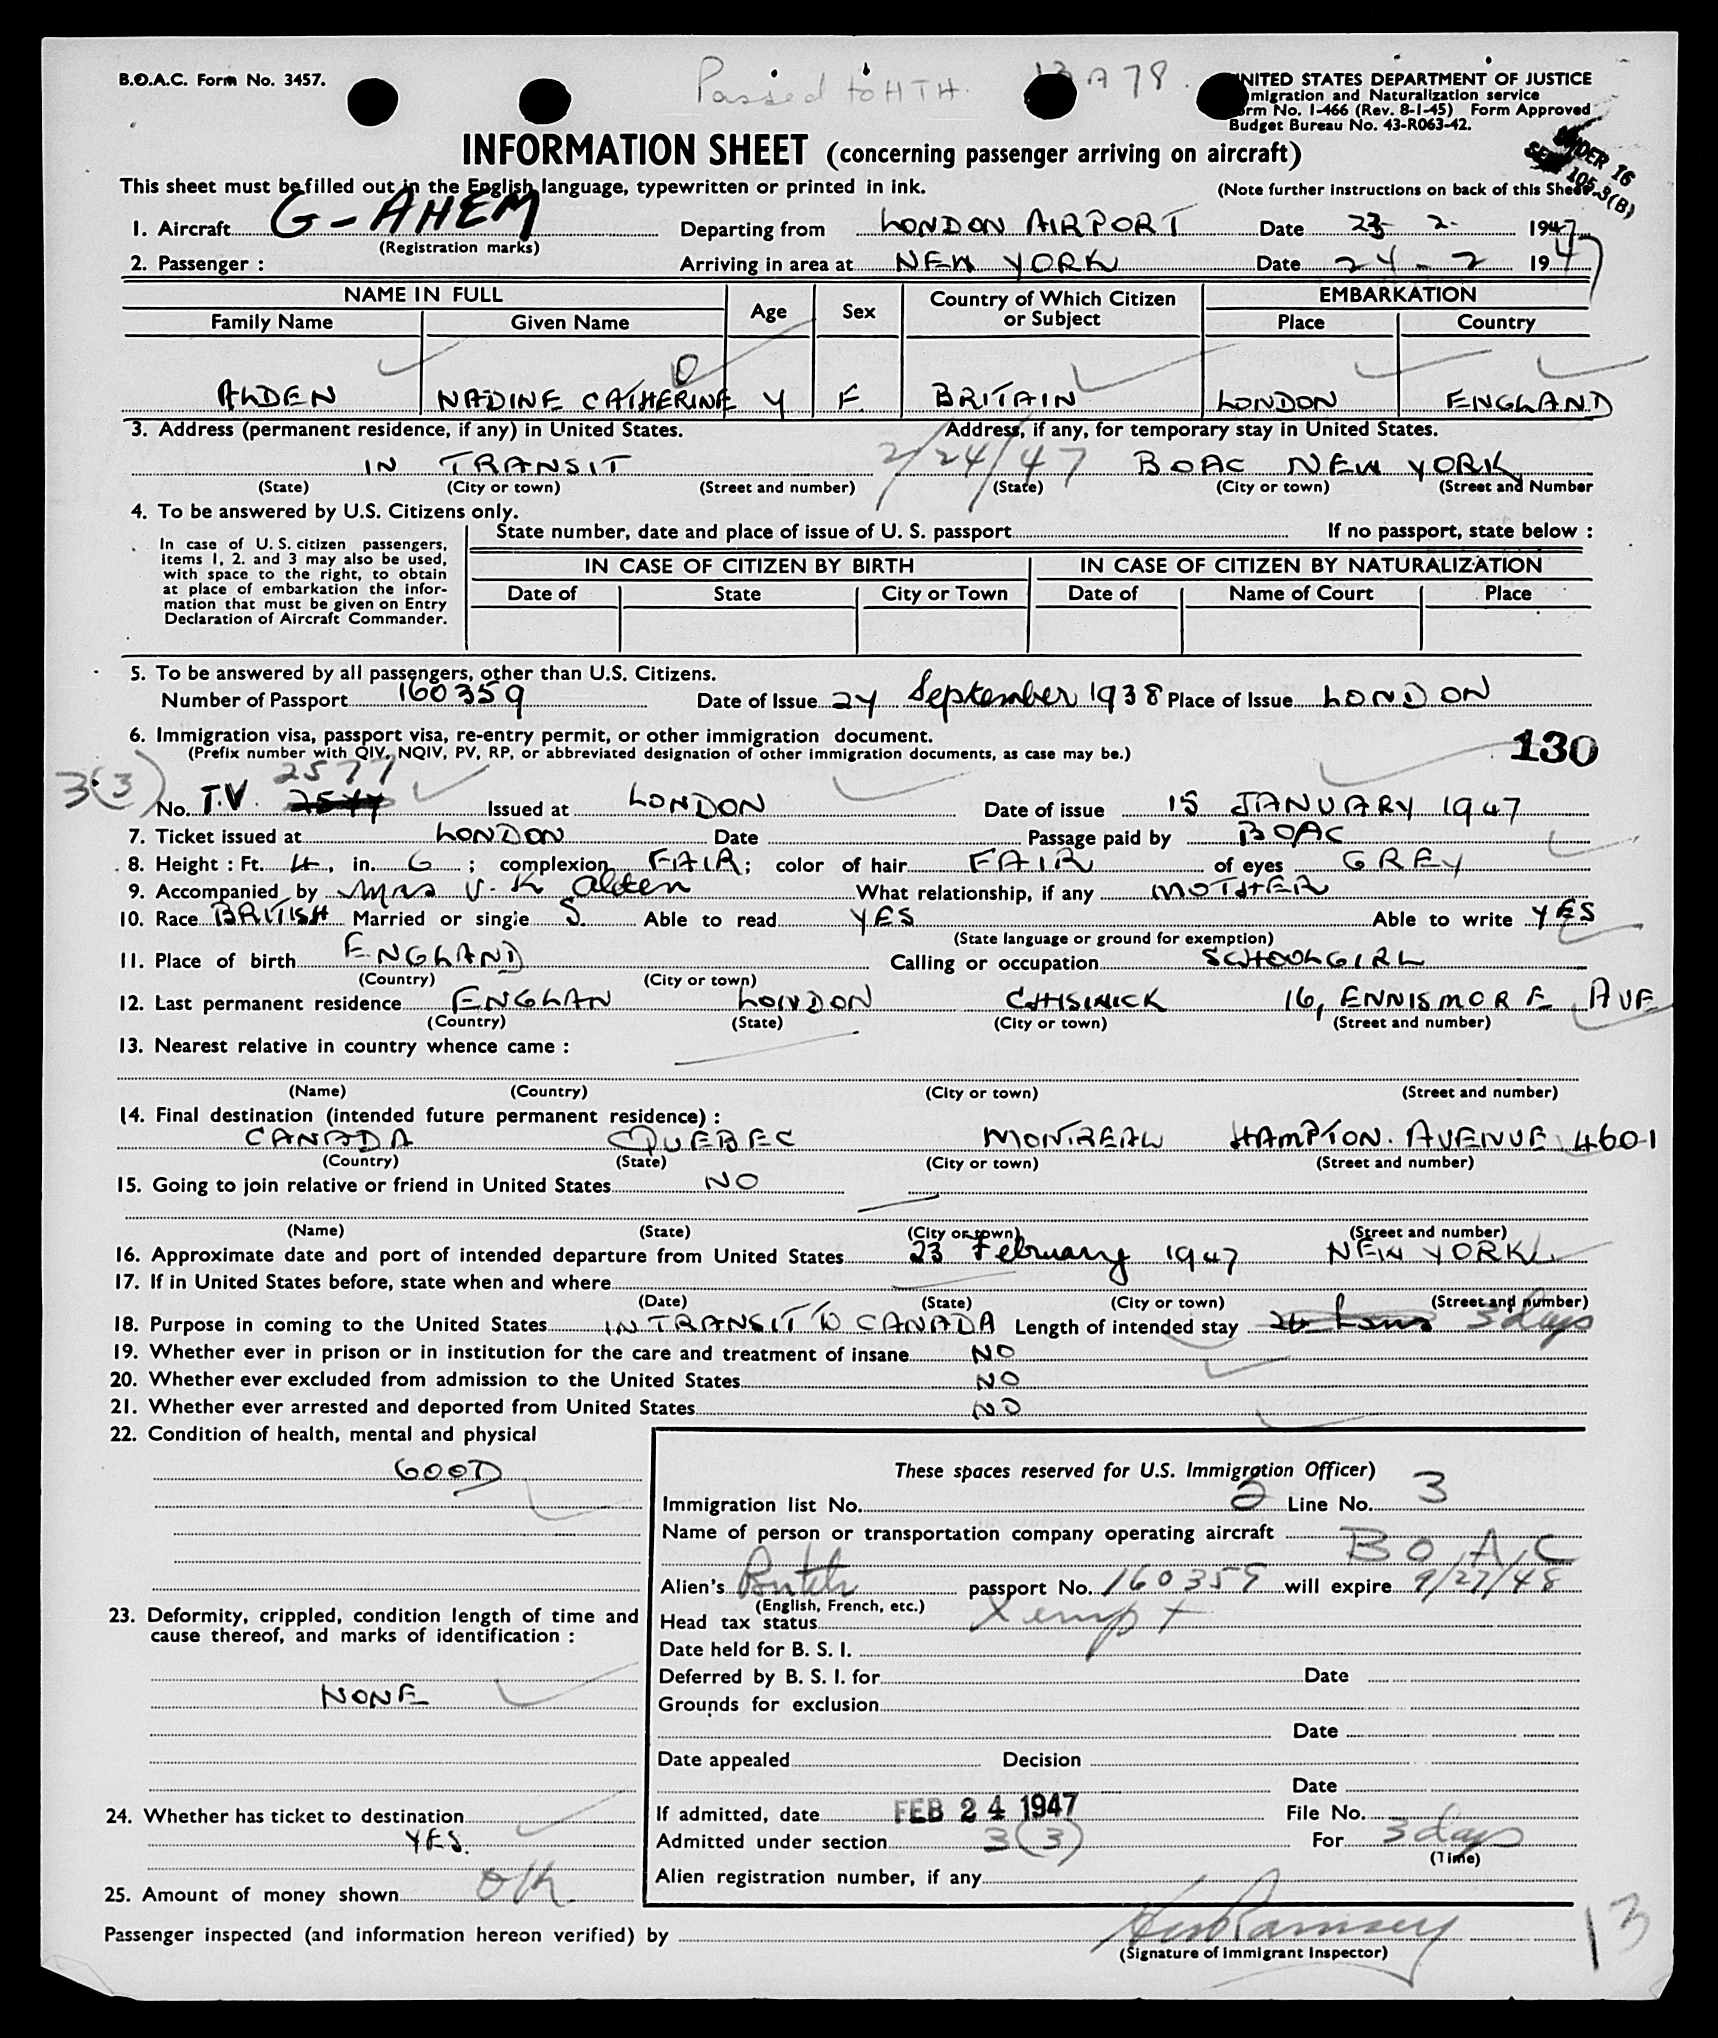 B.O.A.C. Form No. 3457.
Passed to HTH. 13 A 78.
UNITED STATES DEPARTMENT OF JUSTICE
Immigration and Naturalization service
Form No. I-466 (Rev. 8-1-45) Form Approved
Budget Bureau No. 43-R063-42.
UNDER 16
SEC 105.3(B)
INFORMATION SHEET (concerning passenger arriving on aircraft)
This sheet must be filled out in the English language, typewritten or printed in ink. (Note further instructions on back of this Sheet.)
1. Aircraft G-AHEM Departing from LONDON AIRPORT Date 23 2. 1947
(Registration marks)
2. Passenger : Arriving in area at NEW YORK Date 24 - 2 1947
NAME IN FULL Age Sex Country of Which Citizen or Subject EMBARKATION
Family Name Given Name Place Country
O
ALDEN NADINE CATHERINE Y F. BRITAIN LONDON ENGLAND
3. Address (permanent residence, if any) in United States. Address, if any, for temporary stay in United States.
IN TRANSIT 2/24/47 BOAC NEW YORK
(State) (City or town) (Street and number) (State) (City or town) (Street and Number
4. To be answered by U.S. Citizens only.
State number, date and place of issue of U. S. passport If no passport, state below :
In case of U.S. citizen passengers,
items 1, 2. and 3 may also be used,
with space to the right, to obtain
at place of embarkation the infor-
mation that must be given on Entry
Declaration of Aircraft Commander.
IN CASE OF CITIZEN BY BIRTH IN CASE OF CITIZEN BY NATURALIZATION
Date of State City or Town Date of Name of Court Place
5. To be answered by all passengers, other than U.S. Citizens.
Number of Passport 160359 Date of Issue 24 September 1938 Place of Issue LONDON
6. Immigration visa, passport visa, re-entry permit, or other immigration document.
(Prefix number with QIV, NQIV, PV, RP, or abbreviated designation of other immigration documents, as case may be.)
130
3(3) 2577
No. T.V. 2577 Issued at LONDON Date of issue 15 JANUARY 1947
7. Ticket issued at LONDON Date Passage paid by BOAC
8. Height : Ft. 4, in. 6 ; complexion FAIR ; color of hair FAIR of eyes GREY
9. Accompanied by Mrs V. K Alden What relationship, if any MOTHER
10. Race BRITISH Married or single S. Able to read YES Able to write YES
(State language or ground for exemption)
11. Place of birth ENGLAND Calling or occupation SCHOOLGIRL
(Country) (City or town)
12. Last permanent residence ENGLAN LONDON CHISWICK 16, ENNISMORE AVE
(Country) (State) (City or town) (Street and number)
13. Nearest relative in country whence came :
(Name) (Country) (City or town) (Street and number)
14. Final destination (intended future permanent residence) :
CANADA QUEBEC MONTREAL HAMPTON. AVENUE 4601
(Country) (State) (City or town) (Street and number)
15. Going to join relative or friend in United States NO
(Name) (State) (City or town) (Street and number)
16. Approximate date and port of intended departure from United States 23 February 1947 NEW YORK
17. If in United States before, state when and where
(Date) (State) (City or town) (Street and number)
18. Purpose in coming to the United States IN TRANSIT TO CANADA Length of intended stay 3 days
19. Whether ever in prison or in institution for the care and treatment of insane NO
20. Whether ever excluded from admission to the United States NO
21. Whether ever arrested and deported from United States NO
22. Condition of health, mental and physical
GOOD
These spaces reserved for U.S. Immigration Officer)
Immigration list No. 2 Line No. 3
Name of person or transportation company operating aircraft
BOAC
Alien's British passport No. 160359 will expire 9/27/48
(English, French, etc.)
23. Deformity, crippled, condition length of time and
cause thereof, and marks of identification :
NONE
Head tax status Xempt
Date held for B. S. I.
Deferred by B. S. I. for Date
Grounds for exclusion
Date
Date appealed Decision
Date
24. Whether has ticket to destination
YES.
If admitted, date FEB 24 1947 File No.
Admitted under section 3(3) For 3 days
(Time)
Alien registration number, if any
25. Amount of money shown OK
Passenger inspected (and information hereon verified) by Ramsey
(Signature of Immigrant Inspector)
13